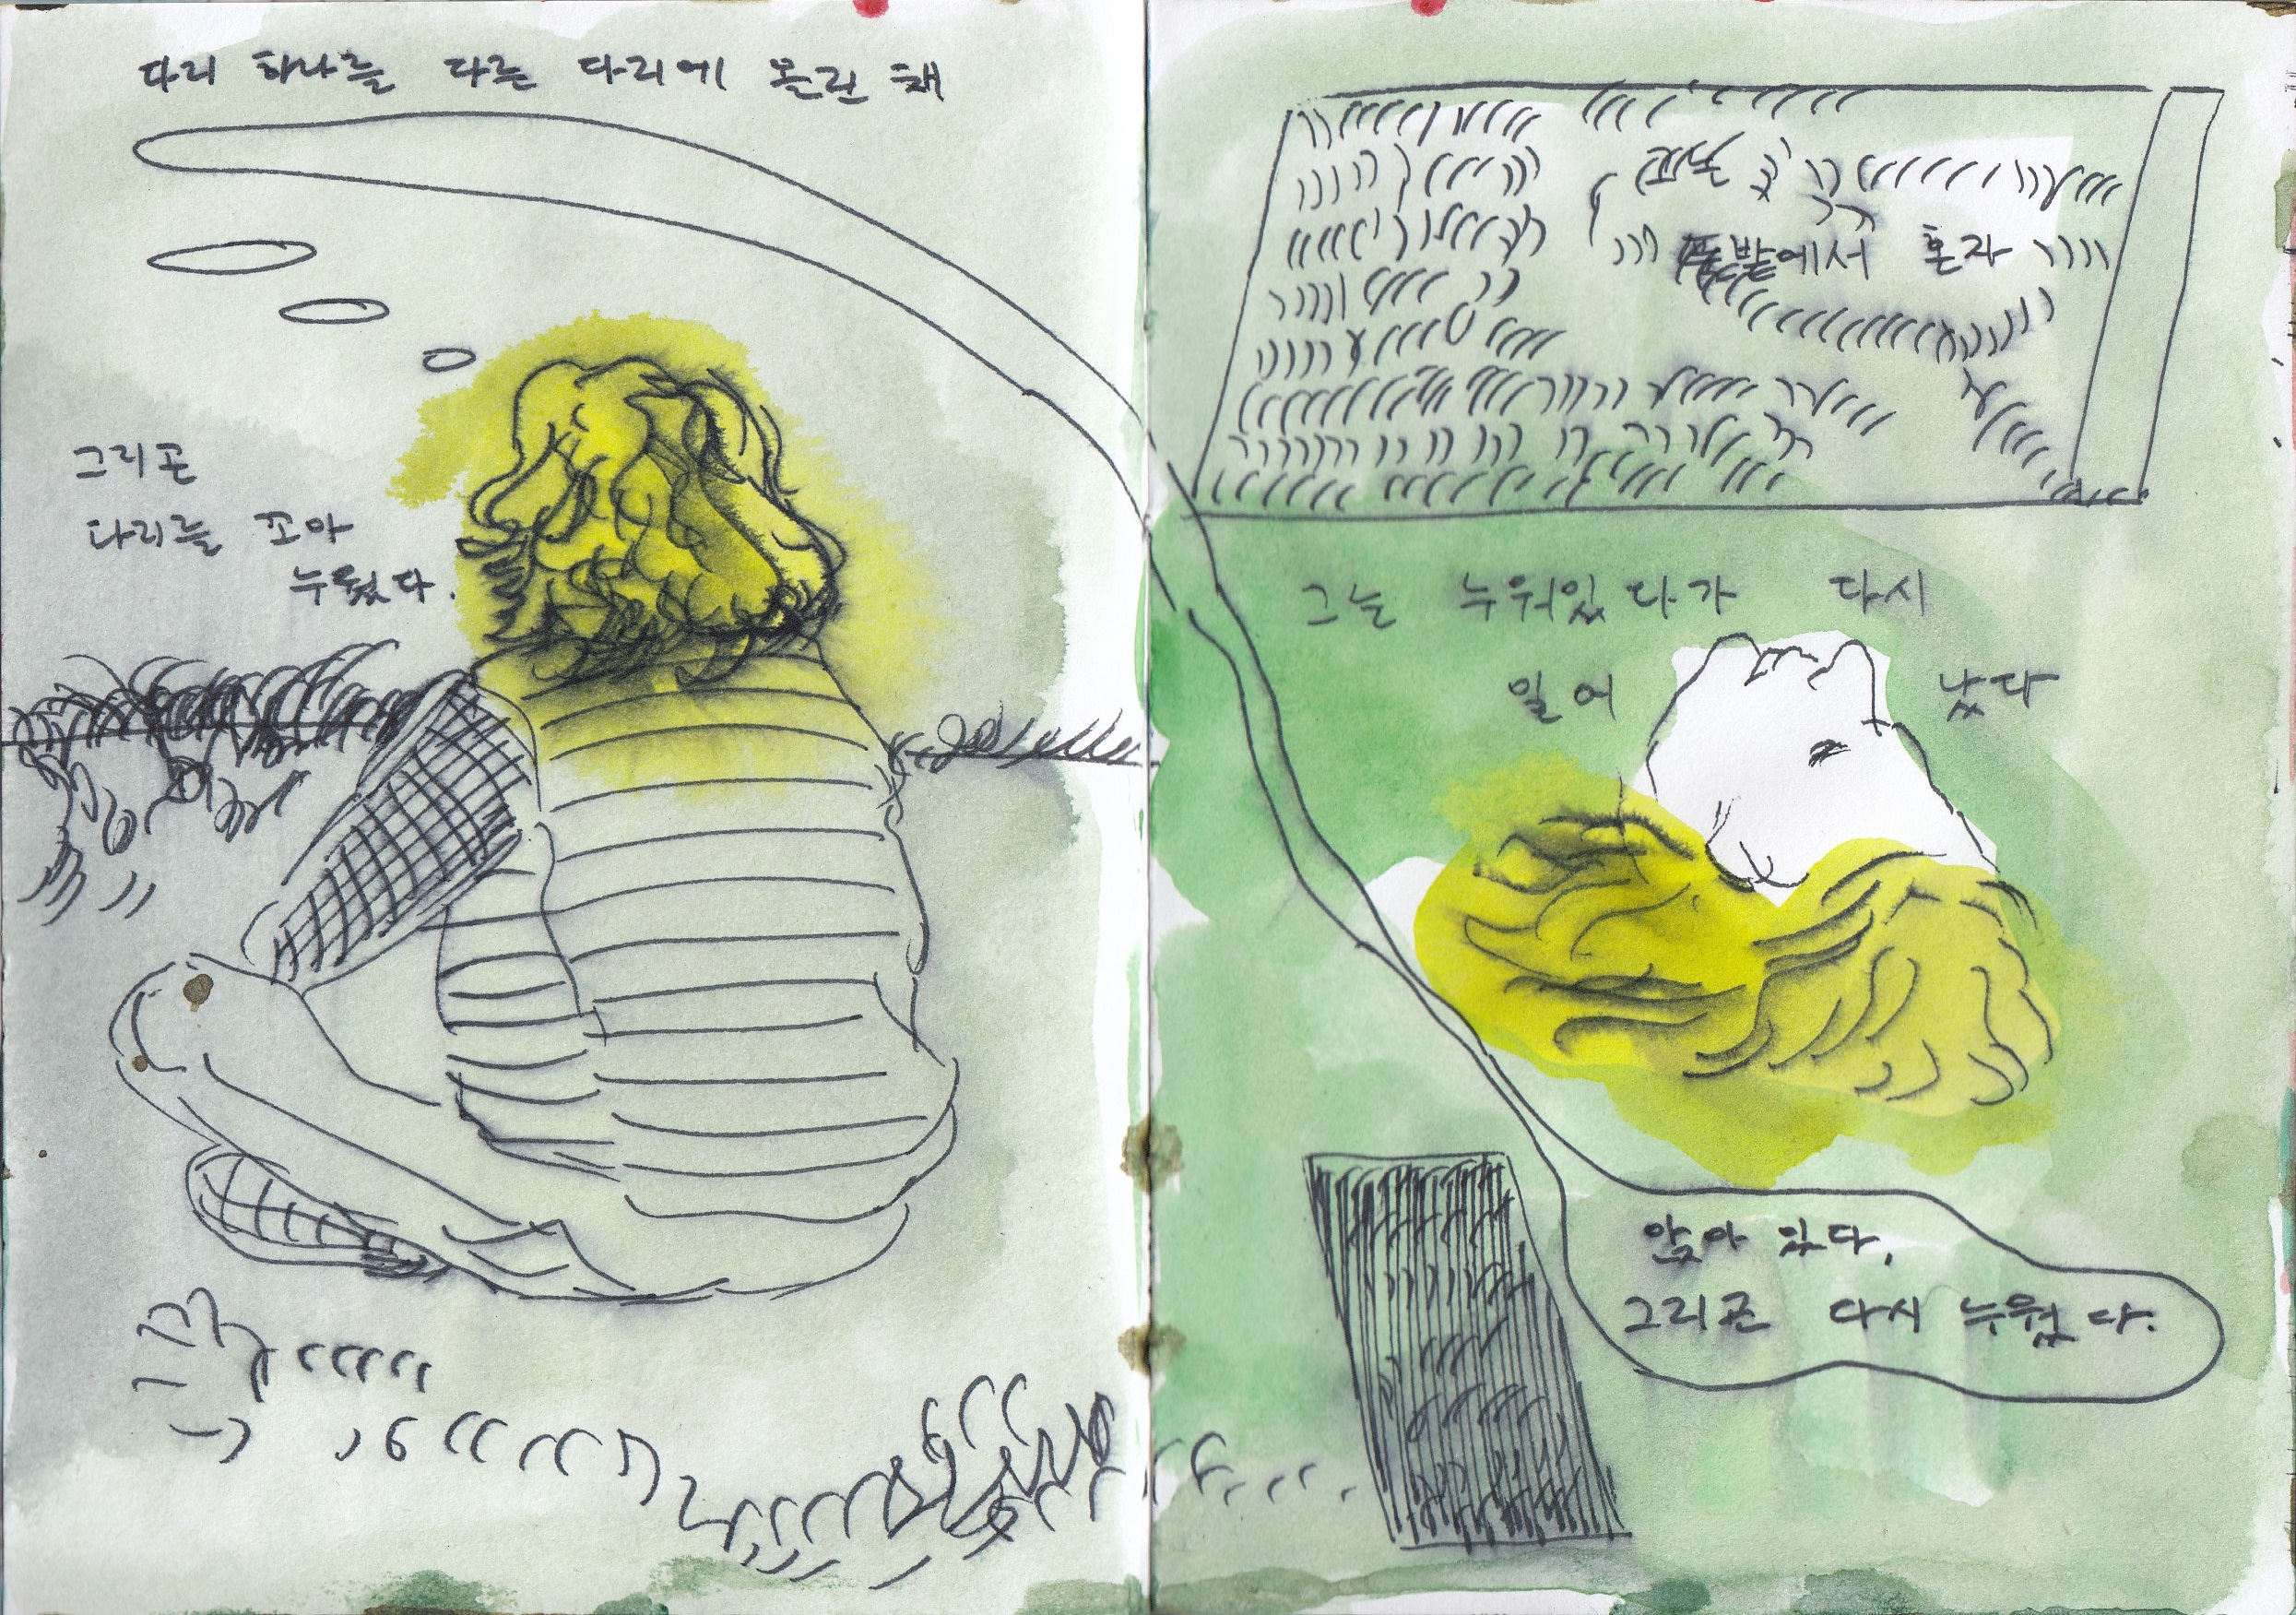 다리 하나를 다른 다리에 올린 채
그리곤
다리를 꼬아
누웠다.
풀밭에서 혼자
그는 누워있다가 다시
일어 났다
앉아 있다,
그리곤 다시 누웠다.